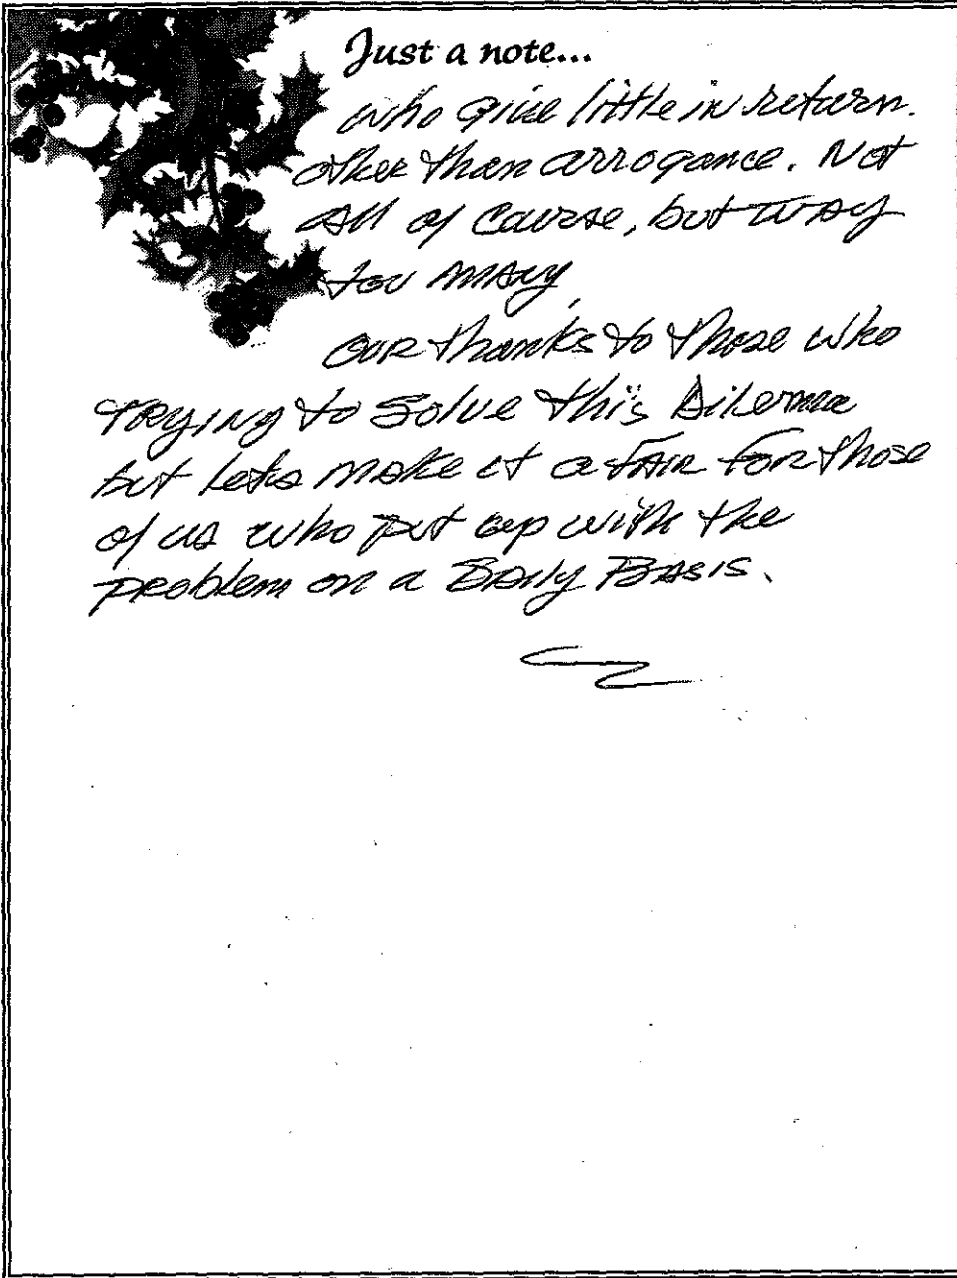 Just a note...
who give little in return.
other than arrogance. Not
All of Course, but WAY
too MANY.
OUR thanks to those who
TRYING to Solve this Dilemma
but Lets MAKE it a FAIR FOR those
of us who put up with the
PROblem on a DAily BASIS.